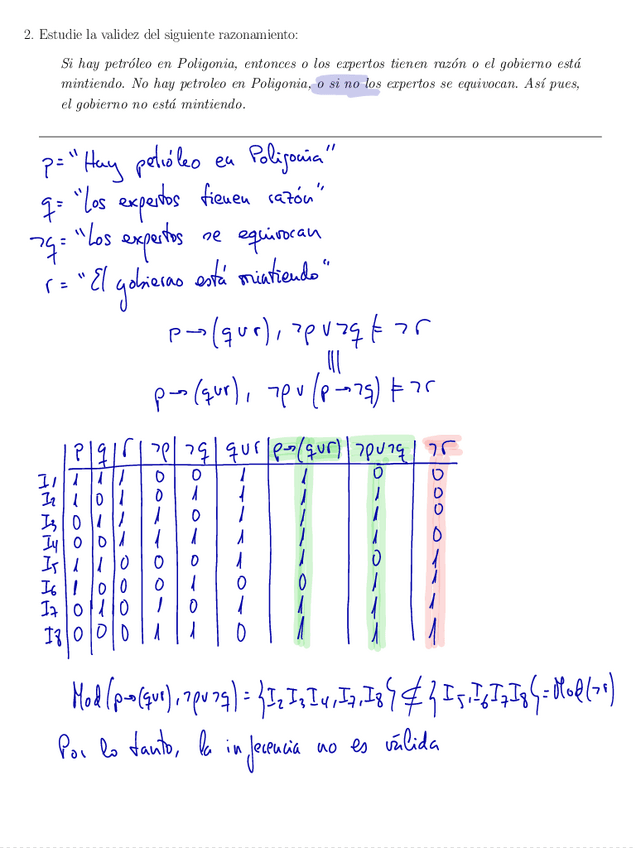 2. Estudie la validez del siguiente razonamiento:
Si hay petróleo en Poligonia, entonces o los expertos tienen razón o el gobierno está
mintiendo. No hay petroleo en Poligonia, o si no los expertos se equivocan. Así pues,
el gobierno no está mintiendo.
p = "Hay petróleo en Poligonia"
q = "Los expertos tienen razón"
¬q = "Los expertos se equivocan
r = "El gobierno está mintiendo"
p → (q ∪ r), ¬p ∪ ¬q ⊨ ¬r
|||
p → (q ∪ r), ¬p ∪ (p → ¬q) ⊨ ¬r
p q r ¬p ¬q q∪r p→(q∪r) ¬p∪¬q ¬r
I1 1 1 1 0 0 1 1 0 0
I2 1 0 1 0 1 1 1 1 0
I3 0 1 1 1 0 1 1 1 0
I4 0 0 1 1 1 1 1 1 0
I5 1 1 0 0 0 1 1 0 1
I6 1 0 0 0 1 0 0 1 1
I7 0 1 0 1 0 1 1 1 1
I8 0 0 0 1 1 0 1 1 1
Mod(p→(q∪r), ¬p∪¬q) = {I2 I3 I4, I7, I8} ⊄ {I5, I6 I7 I8} = Mod(¬r)
Por lo tanto, la inferencia no es válida